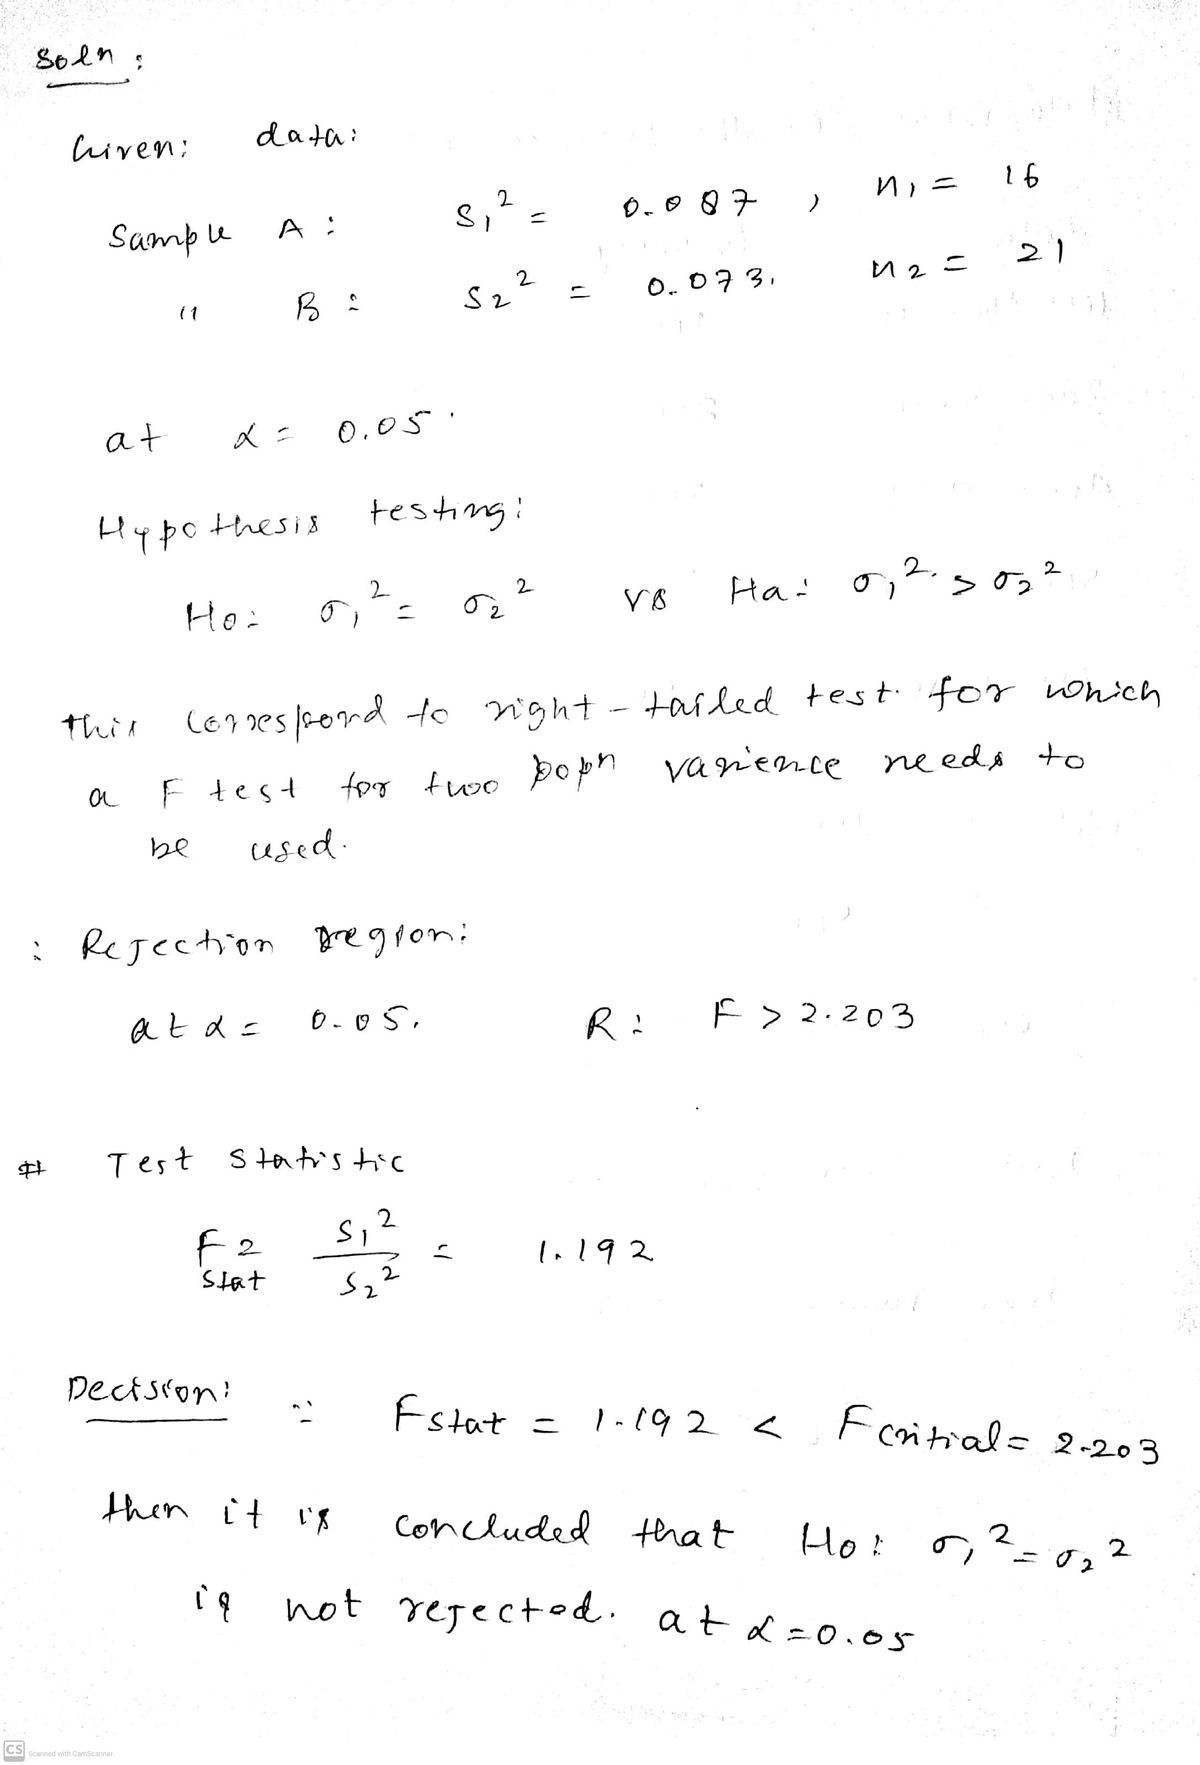 Soln :
Given: data:
Sample A : S₁² = 0.087 , n₁ = 16
" B : S₂² = 0.073. n₂ = 21
at α = 0.05.
Hypothesis testing:
Ho: σ₁² = σ₂² vs Ha: σ₁² > σ₂²
this correspond to right-tailed test. for which
a F test for two popn varience needs to
be used.
: Rejection region:
at α = 0.05. R: F > 2.203
# Test Statistic
F stat = S₁²/S₂² = 1.192
Decision: ∵ Fstat = 1.192 < Fcritial = 2.203
then it is concluded that Ho: σ₁² = σ₂²
is not rejected. at α = 0.05
CS Scanned with CamScanner